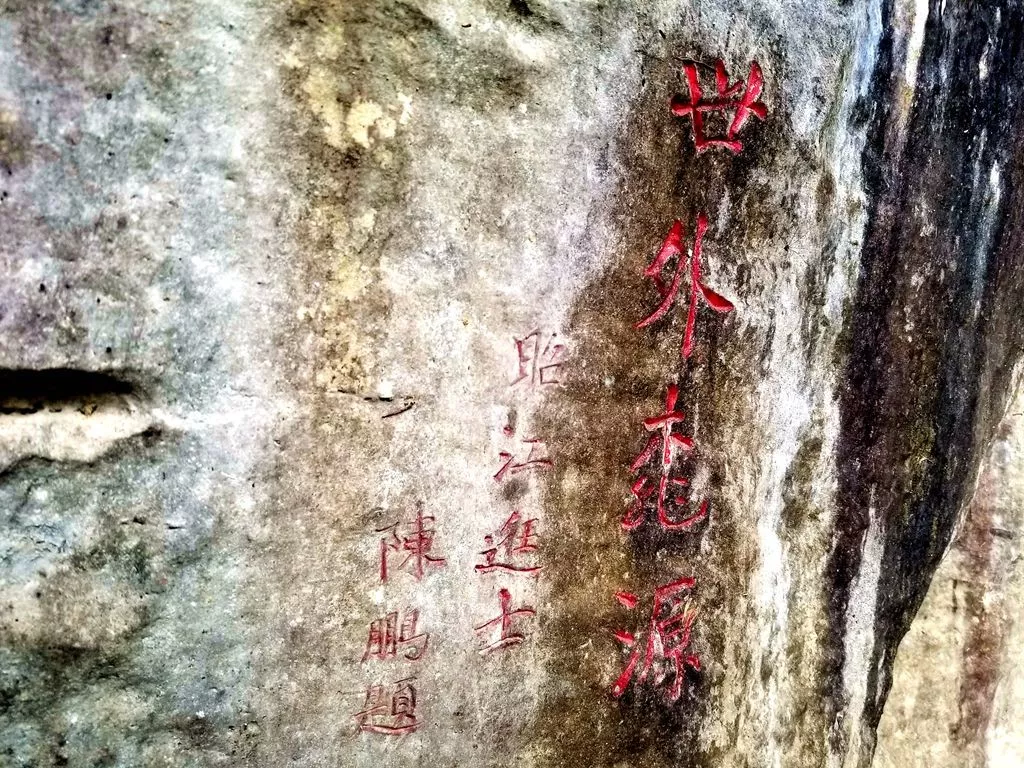 世外桃源
昭江進士
陳鵬題